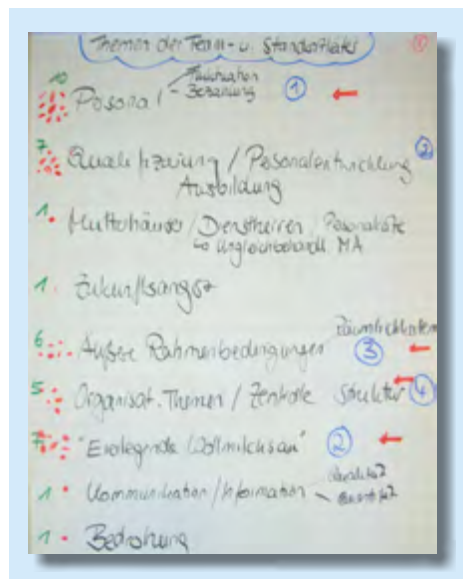 Themen der Team- u. Standorträte
1
10 Personal - Fluktuation
- Bezahlung 1
7 Qualifizierung / Personalentwicklung 2
Ausbildung
1 Mutterhäuser / Dienstherren / Personalräte
↳ Ungleichbehandl. MA
1 Zukunftsangst
Räumlichkeiten
6 Äußere Rahmenbedingungen 3
5 Organisat. Themen / Zentrale Struktur 4
7 "Eierlegende Wollmilchsau" 2
1 Kommunikation / Information Qualität?
Quantität?
1 Bedrohung